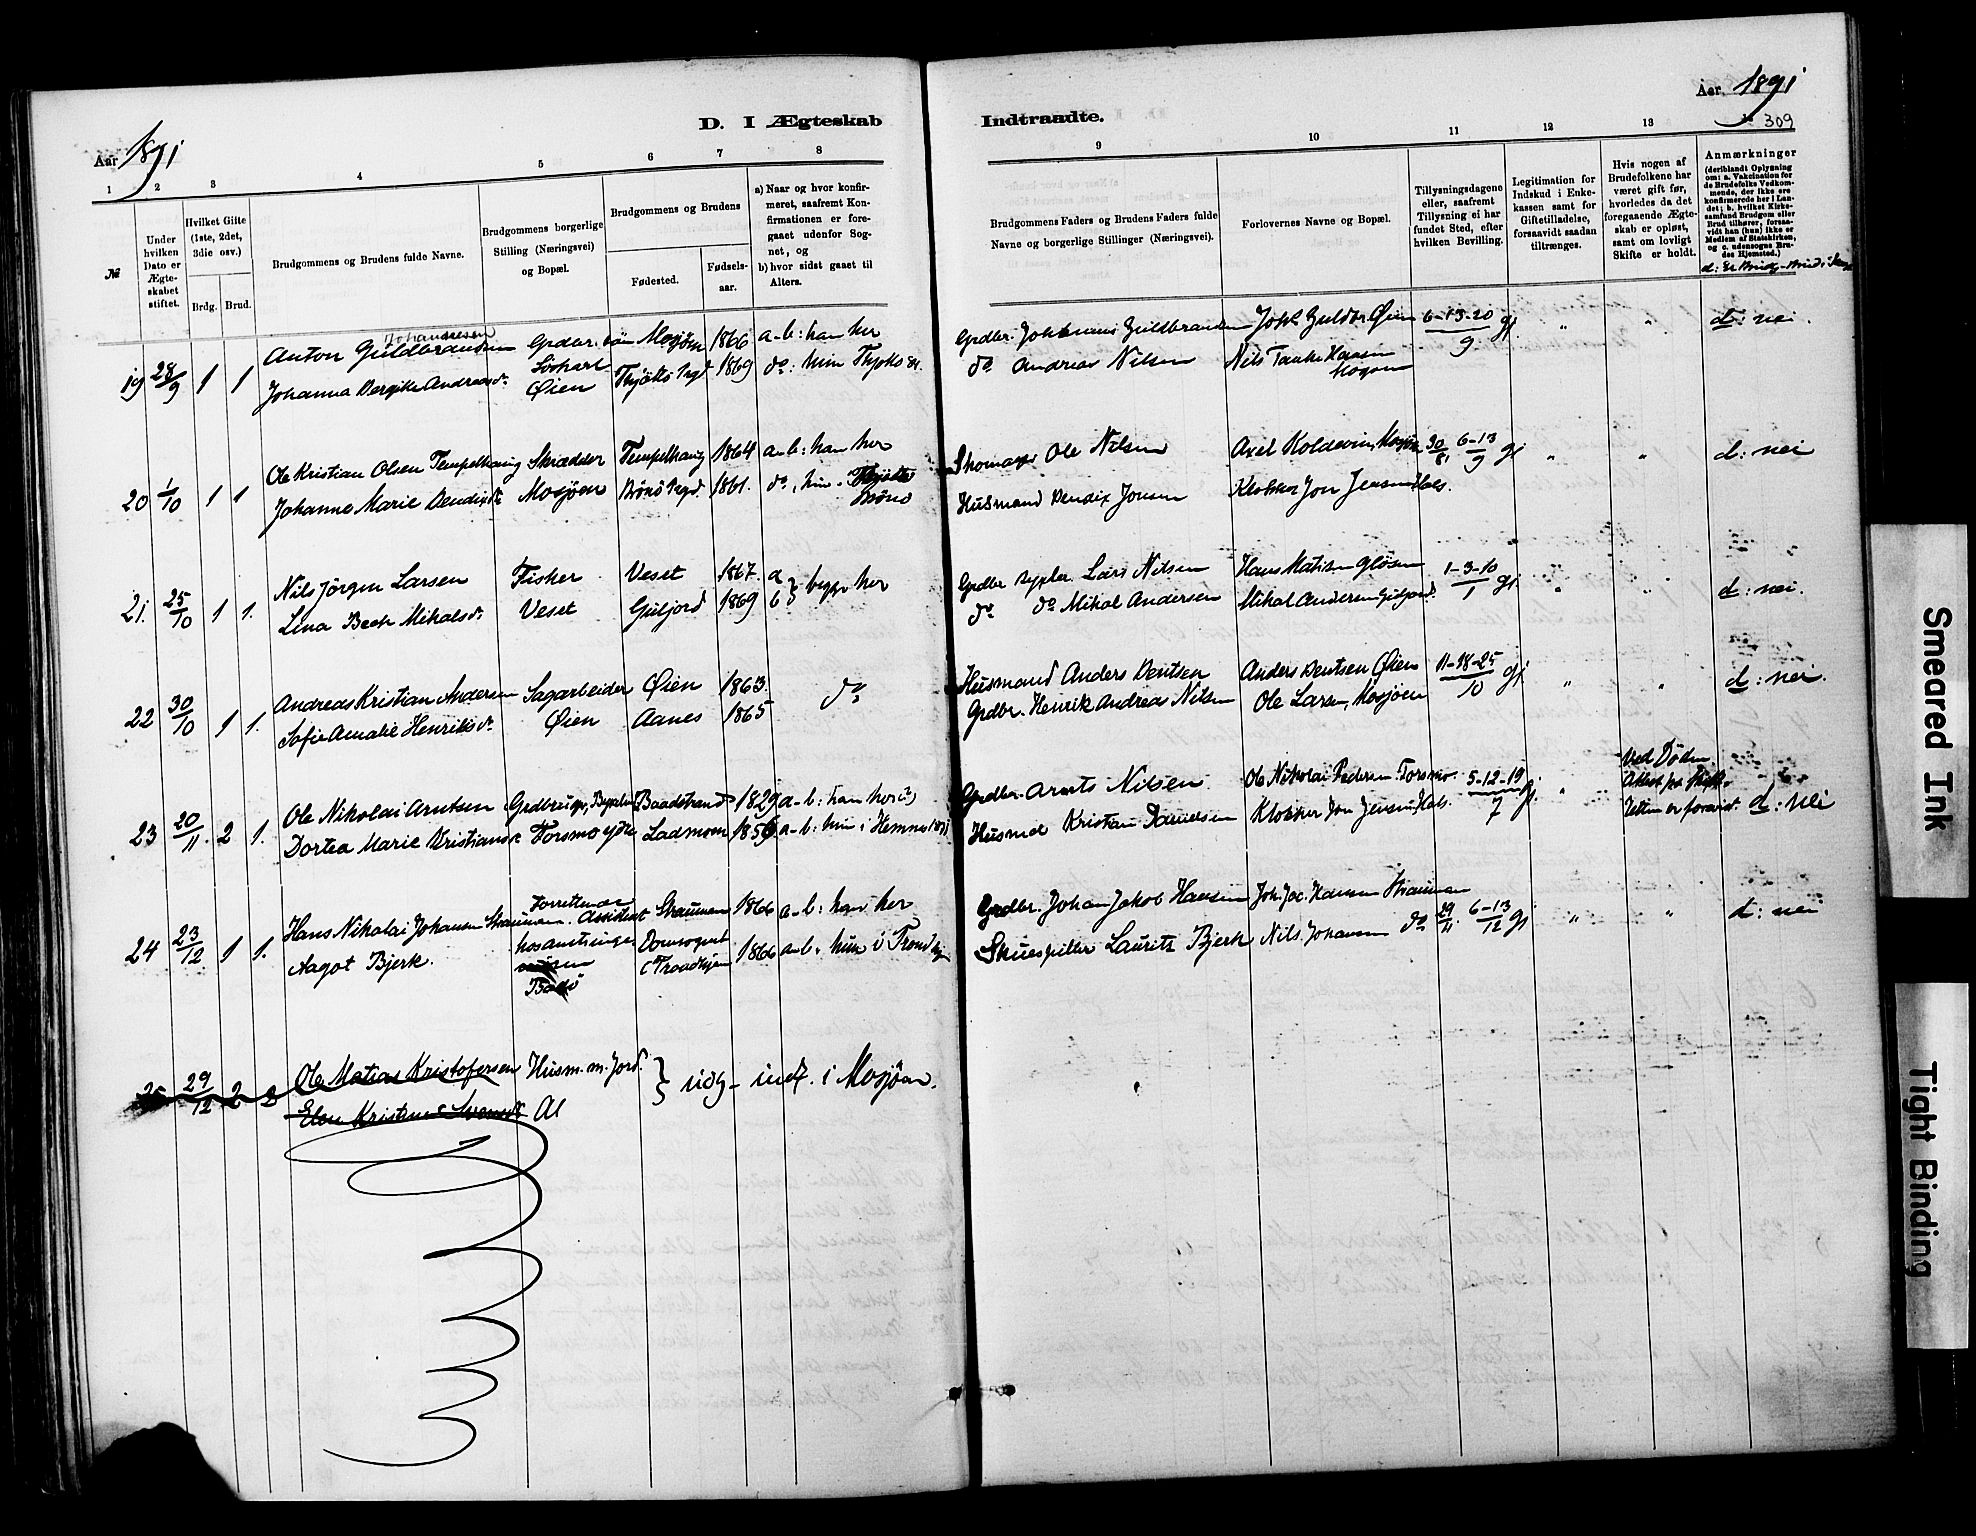 D. I Ægteskab
Aar 1891
1 2 3 4 5 6 7 8
№
Under hvilken Dato er Ægteskabet stiftet.
Hvilket Gifte (1ste, 2det, 3die osv.)
Brdg. Brud.
Brudgommens og Brudens fulde Navne.
Brudgommens borgerlige Stilling (Næringsvei) og Bopæl.
Brudgommens og Brudens
Fødested.
Fødselsaar.
a) Naar og hvor konfirmeret, saafremt Konfirmationen er foregaaet udenfor Sognet, og
b) hvor sidst gaaet til Alters.
19 28/9 1 1 Anton Guldbrandsen Mosjøen 1866 a-b: han her
Johanna Bergitte Andreasdr. Øien 1869 do: hun
20 1/10 1 1 Ole Kristian Olsen Tempelhaug Skrædder Tempelhaug 1864 a-b: han her
Johanna Marie Mosjøen 1861. do, hun
21. 25/10 1 1. Nils Jörgen Larsen Fisker Veset 1867. a
Lina Beck Mikalsdr. Veset Guljord 1869 b } begge her
22 30/10 1 1. Andreas Kristian Andersen Sagarbeider Øien 1863. do
Sofie Amalie Henriksdr. Øien Aanes 1865
23 20/11. 2 1. Ole Nikolai Arntsen Baadstrand 1829 a-b: han her
Dortea Marie Kristiansdr. Forsmo Ladmoen a-b: hun i Hemnes
24 23/12 1 1. Hans Nikolai Johansen Straumen. Assistent Straumen 1866 a-b: han her
Aagot Bjerk. 1866 a-b: hun i Trondhjem
Bodø
25 29/12 2 2 Ole Matias Kristofersen Husm. m. Jord. } udg- indf. i Mosjøen.
Elen Kristine Al
Indtraadte.
Aar 1891
309
9 10 11 12 13
Brudgommens Faders og Brudens Faders fulde Navne og borgerlige Stillinger (Næringsvei).
Forlovernes Navne og Bopæl.
Tillysningsdagene eller, saafremt Tillysning ei har fundet Sted, efter hvilken Bevilling.
Legitimation for Indskud i Enkekassen samt for Giftetilladelse, forsaavidt saadan tiltrænges.
Hvis nogen af Brudefolkene har været gift før, hvorledes da det foregaaende Ægteskab er opløst, samt om lovligt Skifte er holdt.
Anmærkninger
(deriblandt Oplysning om: a. Vakcination for de Brudefolks Vedkommende, der ikke ere konfirmerede her i Landet; b. hvilket Kirkesamfund Brudgom eller Brud tilhører, forsaavidt han (hun) ikke er Medlem af Statskirken, og c. udensogns Brudes Hjemsted.)
Grdbr. Guldbrandsen Joh. Guldbr. Øien 6-13-20/9 gj " " d: nei.
do Andreas Nilsen Nils Hansen
Skomager Ole Nilsen Axel Koldevin, Mosjøen 30/8, 6-13/9 gj " " d: nei
Husmand Bendix Jonsen Klokker Jon Jensen Hals.
Grdbr Lars Nilsen Hans 1-3-10/1 gj. " " d: nei.
do do Mikal Andersen Mikal Andersen Guljord.
Husmand Anders Bentsen Anders Bentsen Øien 11-18-25/10 gj " " d: nei.
Grdbr. Henrik Andreas Nilsen Ole Larsen, Mosjøen
Grdbr. Arnts Nilsen Ole Nikolai Pedersen Forsmo. 5-12-19/7 gj. " Ved Døden. d: nei
Husmd Kristian Danielsen Klokker Jon Jensen, Hals.
Grdbr. Johan Jakob Hansen Joh. Jac. Hansen Straumen 29/11. 6-13/12 gj " " d: nei
Skuespiller Lauritz Bjerk Nils Johansen do
Smeared Ink
Tight Binding